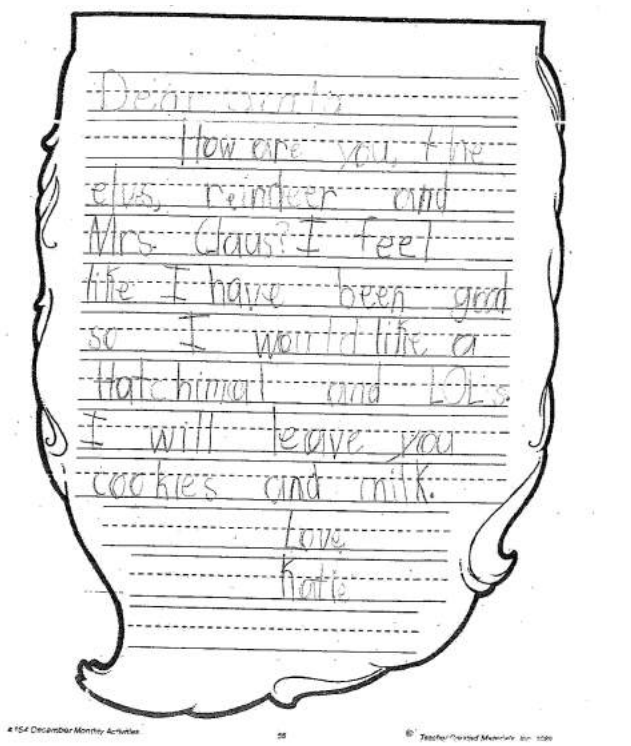 Dear Santa
How are you, the
elvs, reindeer and
Mrs. Claus? I feel
like I have been good
so I would like a
Hatchimal and LOL's.
I will leave you
cookies and milk.
Love,
Katie
#154 December Monthly Activities
© Teacher Created Materials, Inc.